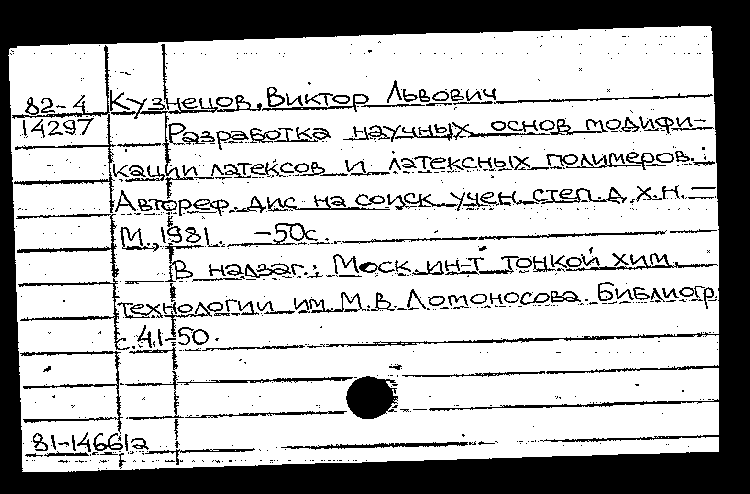 82-4 Кузнецов, Виктор Львович
14297 Разработка научных основ модифи-
кации латексов и латексных полимеров. :
Автореф. дис на соиск учен. степ. д. х. н. —
М., 1981. -50с.
В надзаг.: Моск. ин-т тонкой хим.
технологии им. М. В. Ломоносова. Библиогр
с. 41-50.
81-14661а